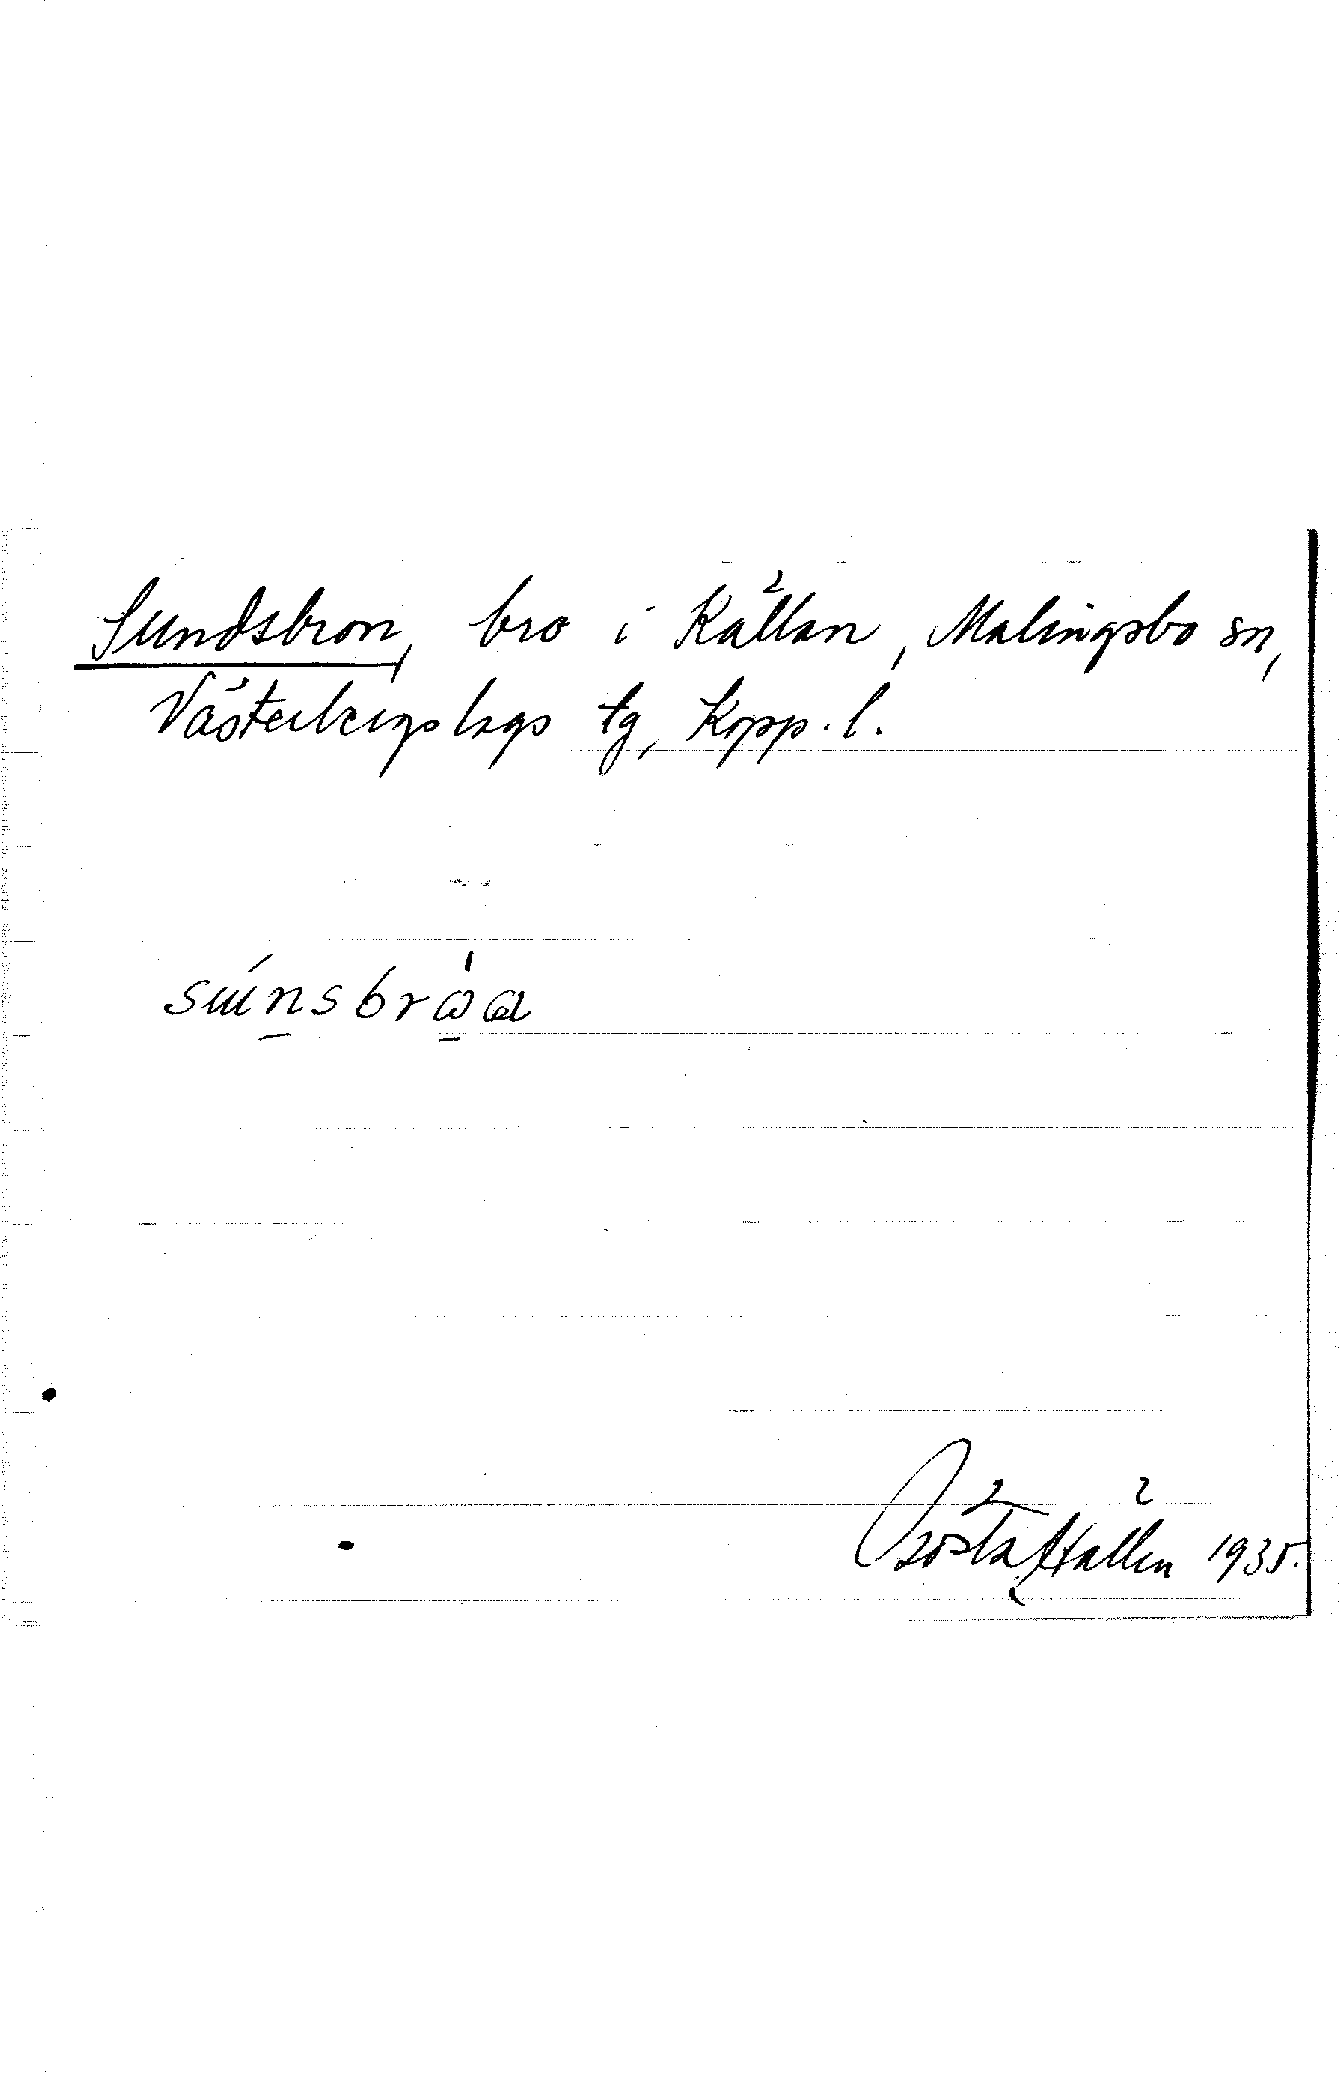 Sundsbron, bro i Källan, Malingsbo sn,
Västerbergslags tg, Kopp. l.
Gösta Hallén 1935.